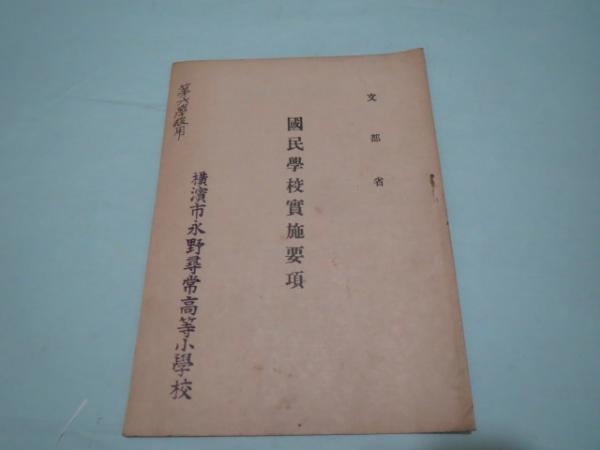 文部省
國民學校實施要項
橫濱市永野尋常高等小學校
第六學級用